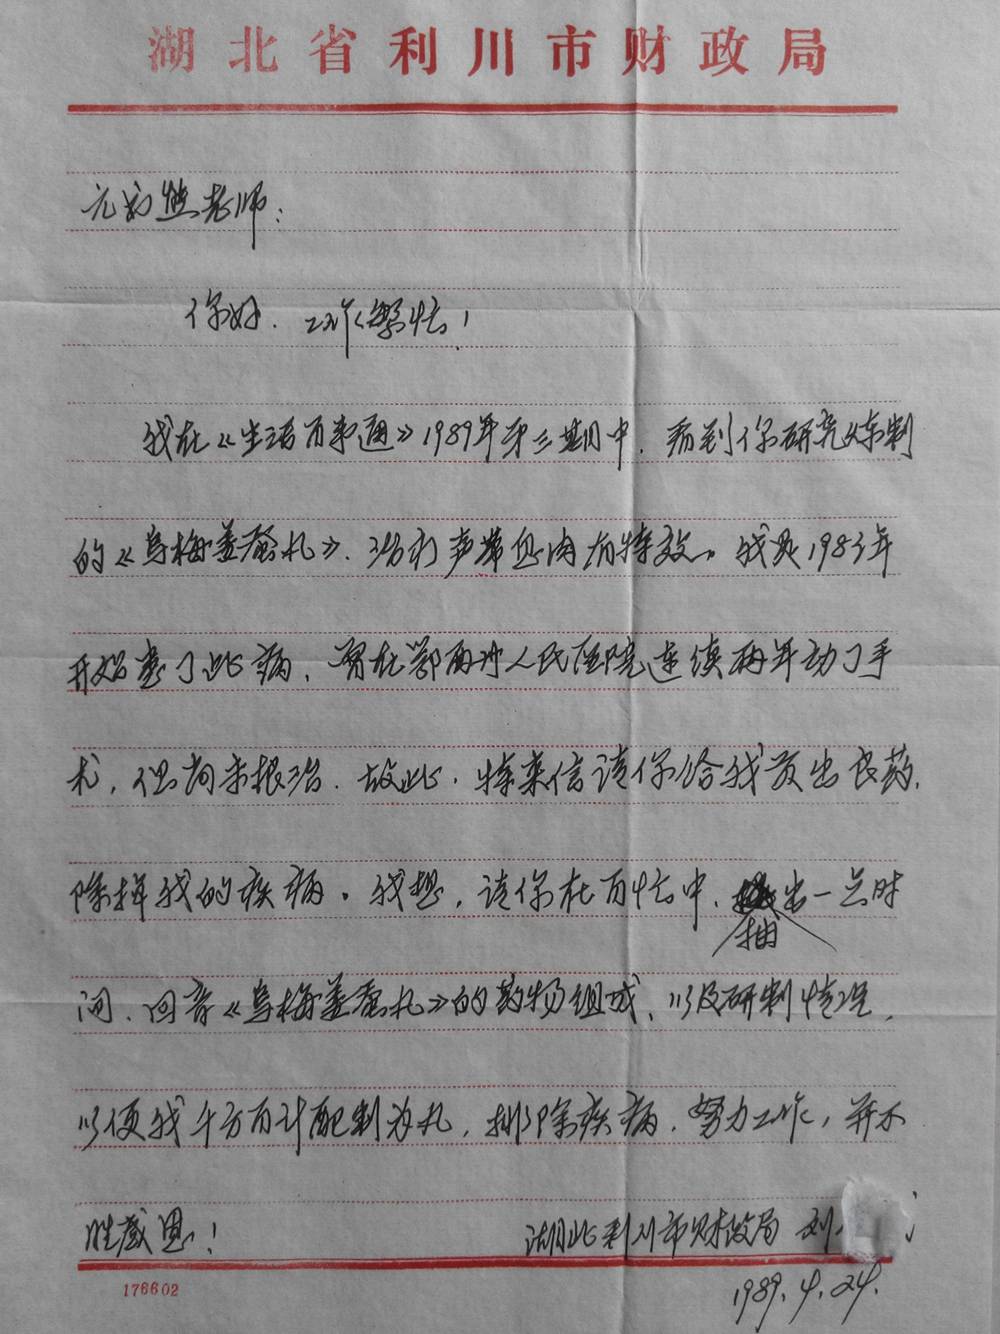 湖北省利川市财政局
老师：
你好．工作繁忙！
我在《生活百事通》1989年第三期中．看到你研究炼制
的《乌梅姜蚕丸》．治疗声带息肉有特效。我是1983年
开始患了此病．曾在鄂西州人民医院连续两年动了手
术，但尚未根治．故此．特来信请你给我发出良药．
除掉我的疾病。我想，请你在百忙中．抽出一点时
间．回音《乌梅姜蚕丸》的药物组成、以及研制情况，
以便我千方百计配制为丸，排除疾病．努力工作，并不
胜感恩！ 湖北利川市财政局 刘
1989.4.24.
176602